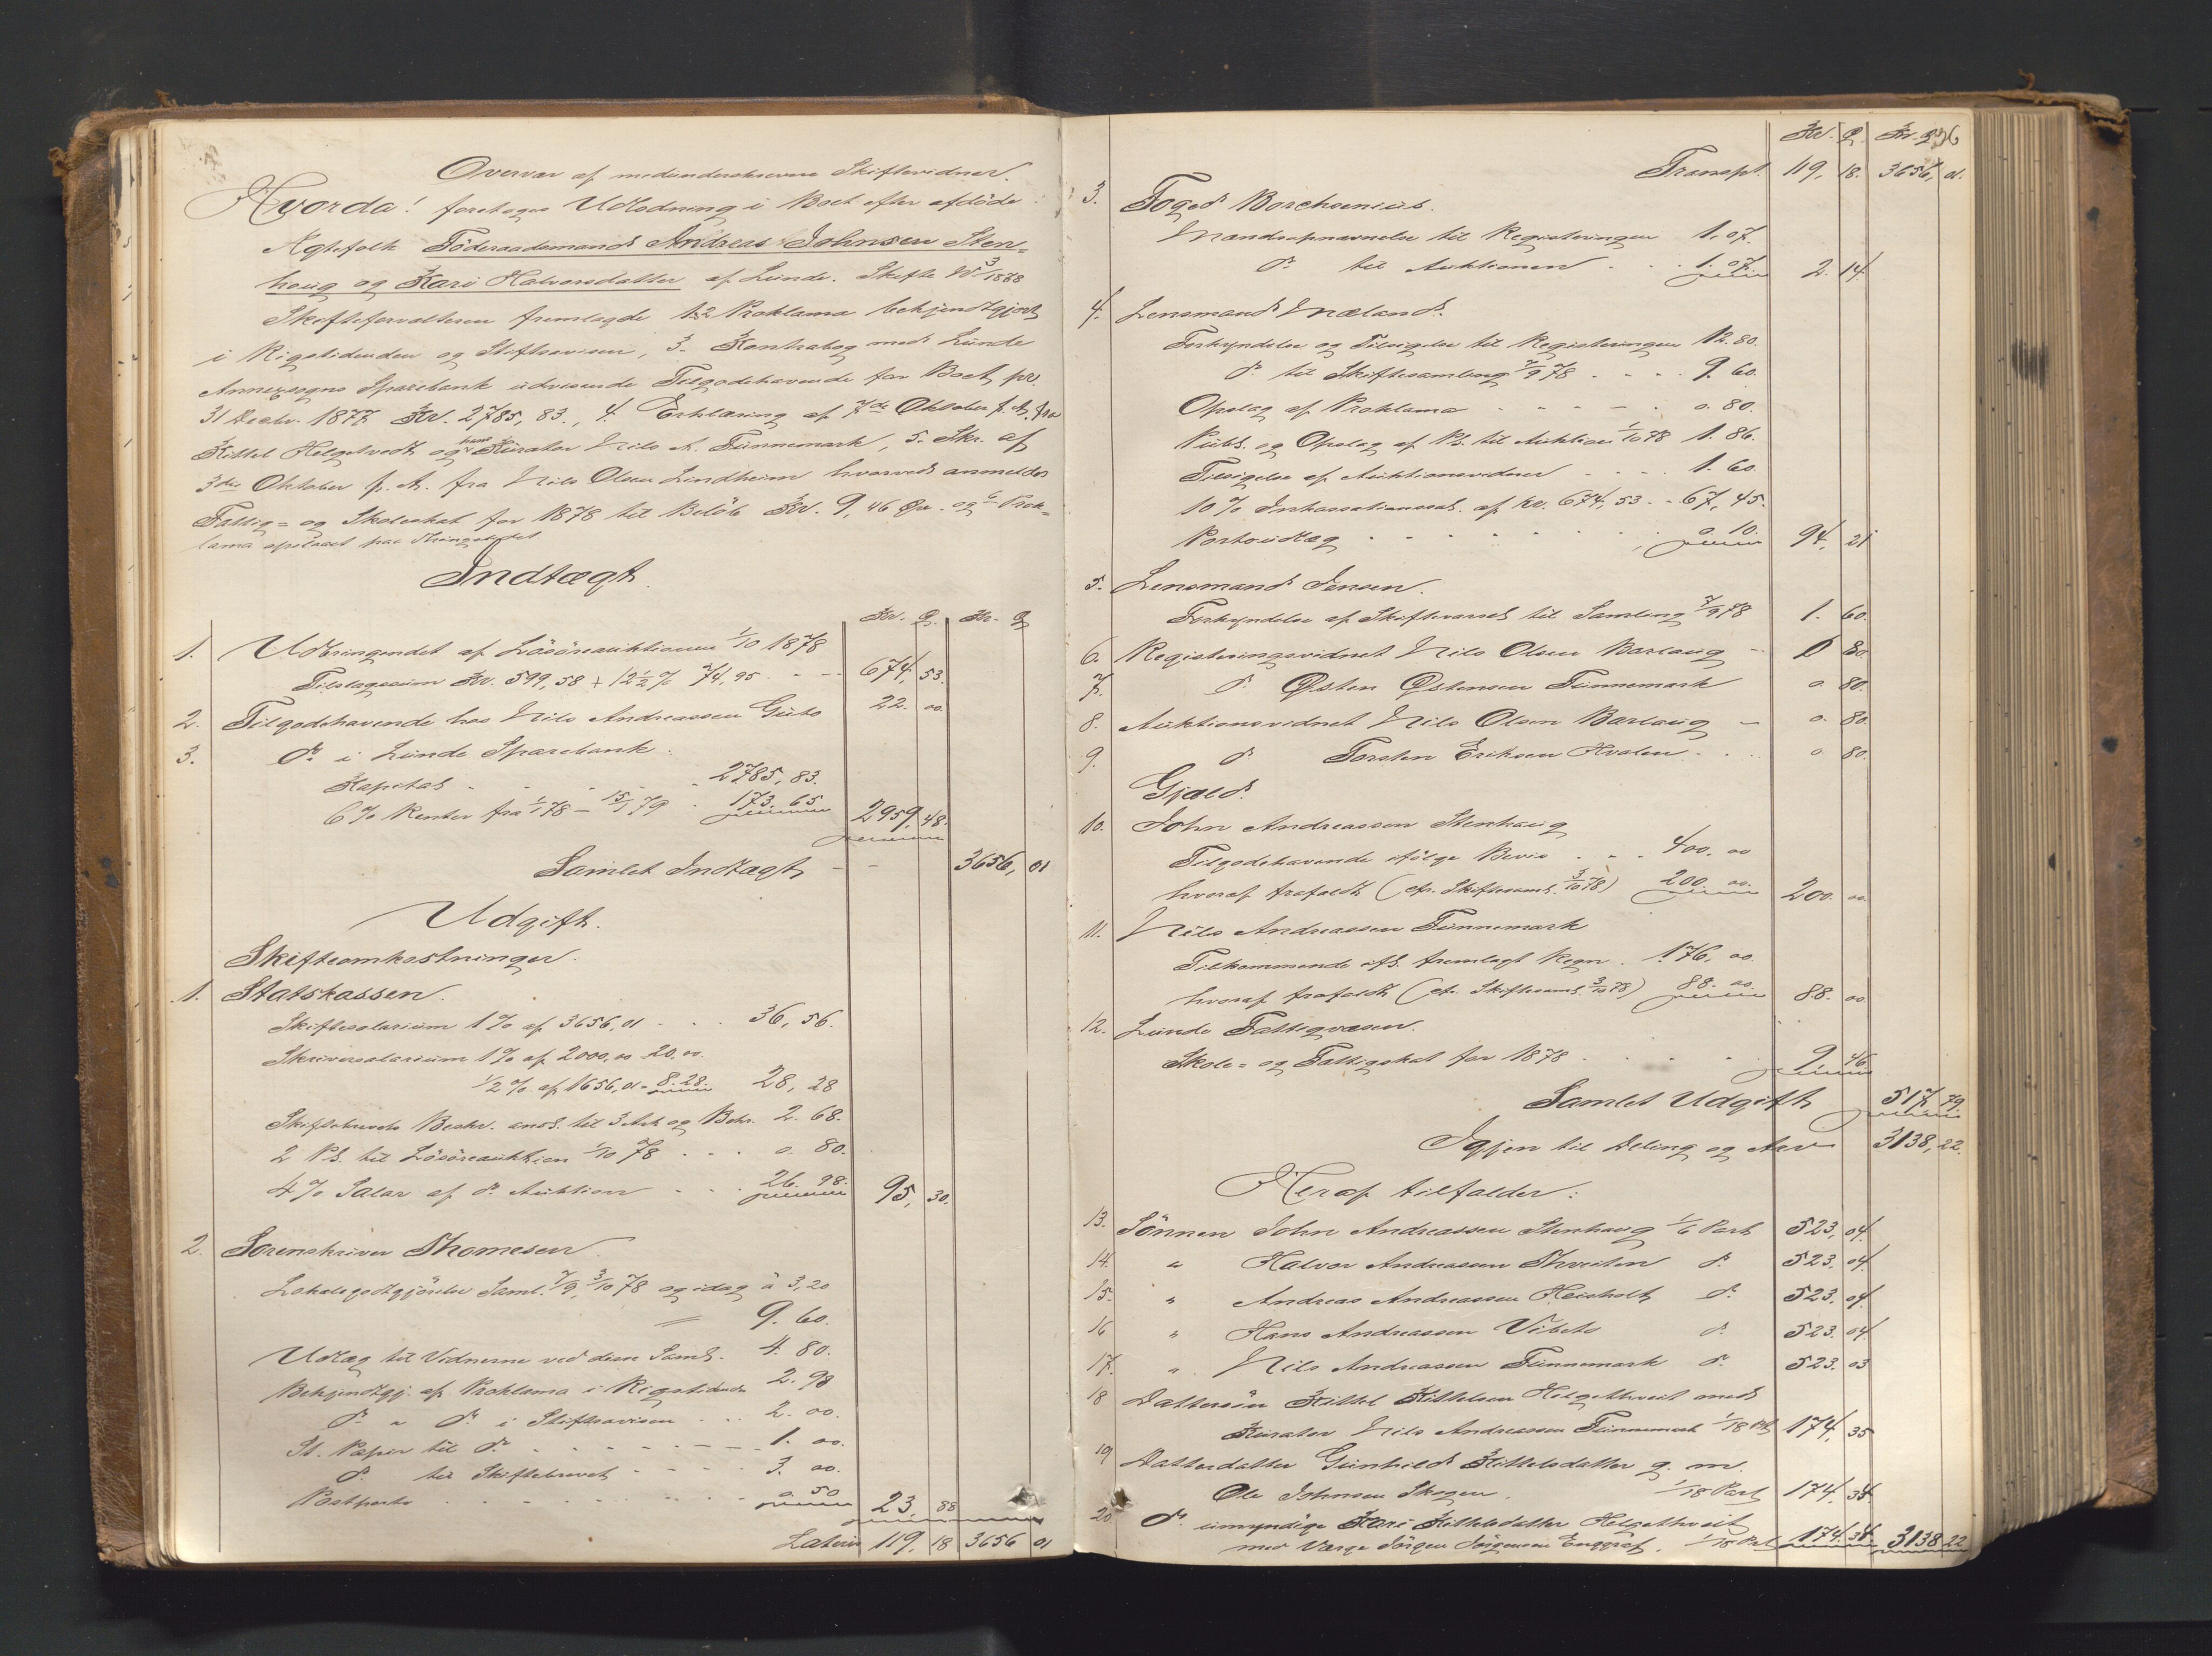 Overvær af medunderskrevne Skiftevidner.
Hvorda! foretoges Udlodning i Boet efter afdöde
Ægtefolk Föderaadsmand Andreas Johnsen Sten=
houg og Kari Halvorsdatter af Lunde. Skifte No 3/1878
Skifteforvalteren fremlagde 1&2 Proklama bekjendtgjort
i Rigstidenden og Stiftsavisen, 3. Kontrabog med Lunde
Annexsogns Sparebank udvisende Tilgodehavende for Boet pr.
31 Decbr. 1877 Kr. 2785,83., 4. Erklæring af 7de Oktober f. A. fra
Kittel Helgetvedt og hans Kurator Nils A. Tunnemark, 5. Skr. af
3die Oktober f. A. fra Nils Olsen Lindheim hvorved anmeldes
Fattig= og Skoleskat for 1878 til Belöb Kr. 9,46 Ør. og 6 Prok=
lama opslaaet paa Thingstedet.
Indtægt.
Kr. Ø. Kr. Ø
1. Udbringendet af Lösöreauktionen 1/10 1878
Tilslagssum Kr. 599,58 + 12½% 74,95 - - 674, 53.
2. Tilgodehavende hos Nils Andreassen Gubo 22. 00.
3. Do i Lunde Sparebank.
Kapital - - - 2785,83.
6% Renter fra 1/1 78 - 15/1 79 . 173.65 2959, 48.
Samlet Indtægt - - 3656, 01
Udgift.
Skifteomkostninger.
1. Statskassen.
Skiftesalarium 1% af 3656,01 - . . 36,56.
Skriversalarium 1% af 2000,00 20.00.
1/2% af 1656,01 = 8.28. 28,28
Skiftebrevets Beskr. ansl. til 3 Ark og Bekr. 2.68.
2 Pl. til Lösöreauktion 1/10 78 . . . 0.80.
4% Salar af do Auktion - . . 26.98. 95, 30.
2. Sorenskriver Thomesen.
Lokalegodtgjörelse Saml. 7/9, 3/10 78 og idag à 3,20
= 9.60.
Udlæg til Vidnerne ved disse Saml. 4.80.
Bekjendtgj. af Proklama i Rigstidende 2.98
Do " Do i Stiftsavisen . . . 2.00.
St. Papir til Do . - - - - - - 1.00.
Do til Skiftebrevet - - - - 3.00.
Postporto . - - - - - - 0.50 23. 88
Lateris 119, 18 3656 01
Kr. Ø. Kr. Ø 236
Transpt. 119, 18. 3656, 01.
3. Foged Borchsenius.
Mandsopnævnelse til Registeringen 1,07.
Do til Auktionen . . . 1.07. 2. 14
4. Lensmand Mæland.
Forkyndelse og Tilsigelse til Registeringen 12.80.
Do til Skiftesamling 7/9 78 . - - - 9.60.
Opslag af Proklama - - - - - . 0.80.
Publ. og Opslag af Pl. til Auktion 1/10 78 1.86.
Tilsigelse af Auktionsvidner - - - . 1.60.
10% Inkassationssal. af Kr. 674,53 - - 67,45.
Portoudlæg . - - - - - - 0.10. 94, 21
5. Lensmand Jensen.
Forkyndelse af Skiftevarsel til Samling 7/9 78 1. 60.
6. Registeringsvidnet Nils Olsen Barlaug - 0 80
7. Do Østen Østensen Tunnemark 0. 80.
8. Auktionsvidnet Nils Olsen Barlaug - 0. 80.
9. Do Torsten Eriksen Hvalen - . . 0. 80.
Gjæld.
10. John Andreassen Stenhaug
Tilgodehavende ifölge Bevis . . . 400.00
hvoraf frafaldt (cfr. Skiftesaml. 3/10 78) 200.00. 200. 00.
11. Nils Andreassen Tunnemark
Tilkommende ifl. fremlagt Regn. . 176,00.
hvoraf frafaldt (cfr. Skiftesaml. 3/10 78) 88.00. 88. 00.
12. Lunde Fattigvæsen.
Skole= og Fattigskat for 1878 . . . . 9, 46
Samlet Udgift 517, 79.
Igjen til Deling og Arv 3138, 22.
Heraf tilfalder:
13. Sönnen John Andreassen Stenhaug 1/6 Part 523, 04.
14. " Halvor Andreassen Skreiten Do 523. 04.
15. " Andreas Andreassen Heisholt Do 523. 04.
16 " Hans Andreassen Vibeto Do 523. 04.
17. " Nils Andreassen Tunnemark Do 523. 03
18 Dattersön Kittel Kittelsen Helgethveit med
Kurator Nils Andreassen Tunnemark 1/18 Prt 174, 35
19 Datterdatter Gunhild Kittelsdatter g. m.
Ole Johnsen Skogen. 1/18 Part 174, 34.
20 Do umyndige Kari Kittelsdatter Helgethveit
med Værge Jörgen Jörgensen Enggrav. 1/18 Prt 174. 34. 3138 22